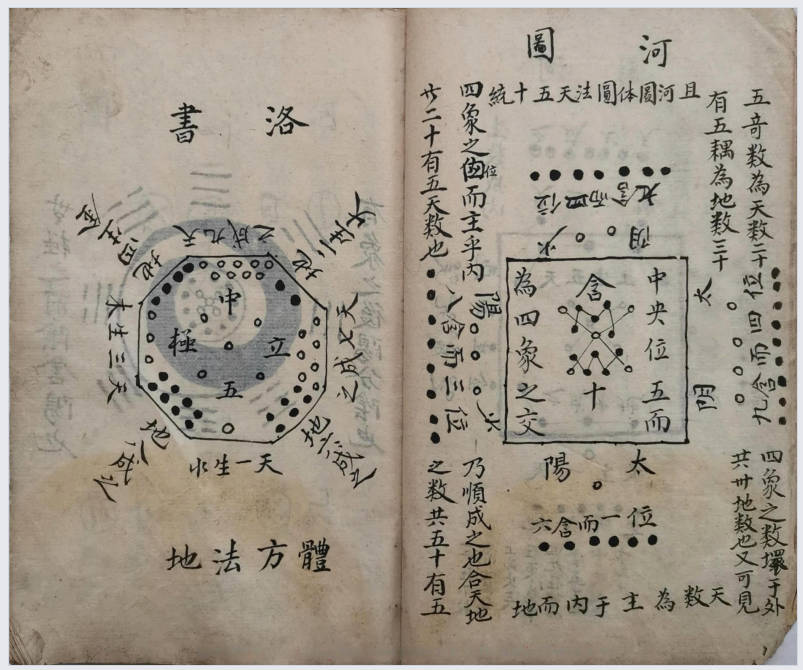 河圖
且河圖体圓法天五十統
五奇数為天数二十
有五耦為地数三十
位四而含九
太陰
四象之数環于外
共卅地数也又可見
天数為主于内而地
四象之位而主乎内
廿二十有五天数也
八含而三位
少陽
乃順成之也合天地
之数共五十有五
位四而含九
少陰
中央位五而
含
十
為四象之交
太陽
位一而含六
洛書
天九成之
地二生火
天七成之
地六成之
天一生水
地八成之
天三生木
地四生金
中
立
五
極
體方法地